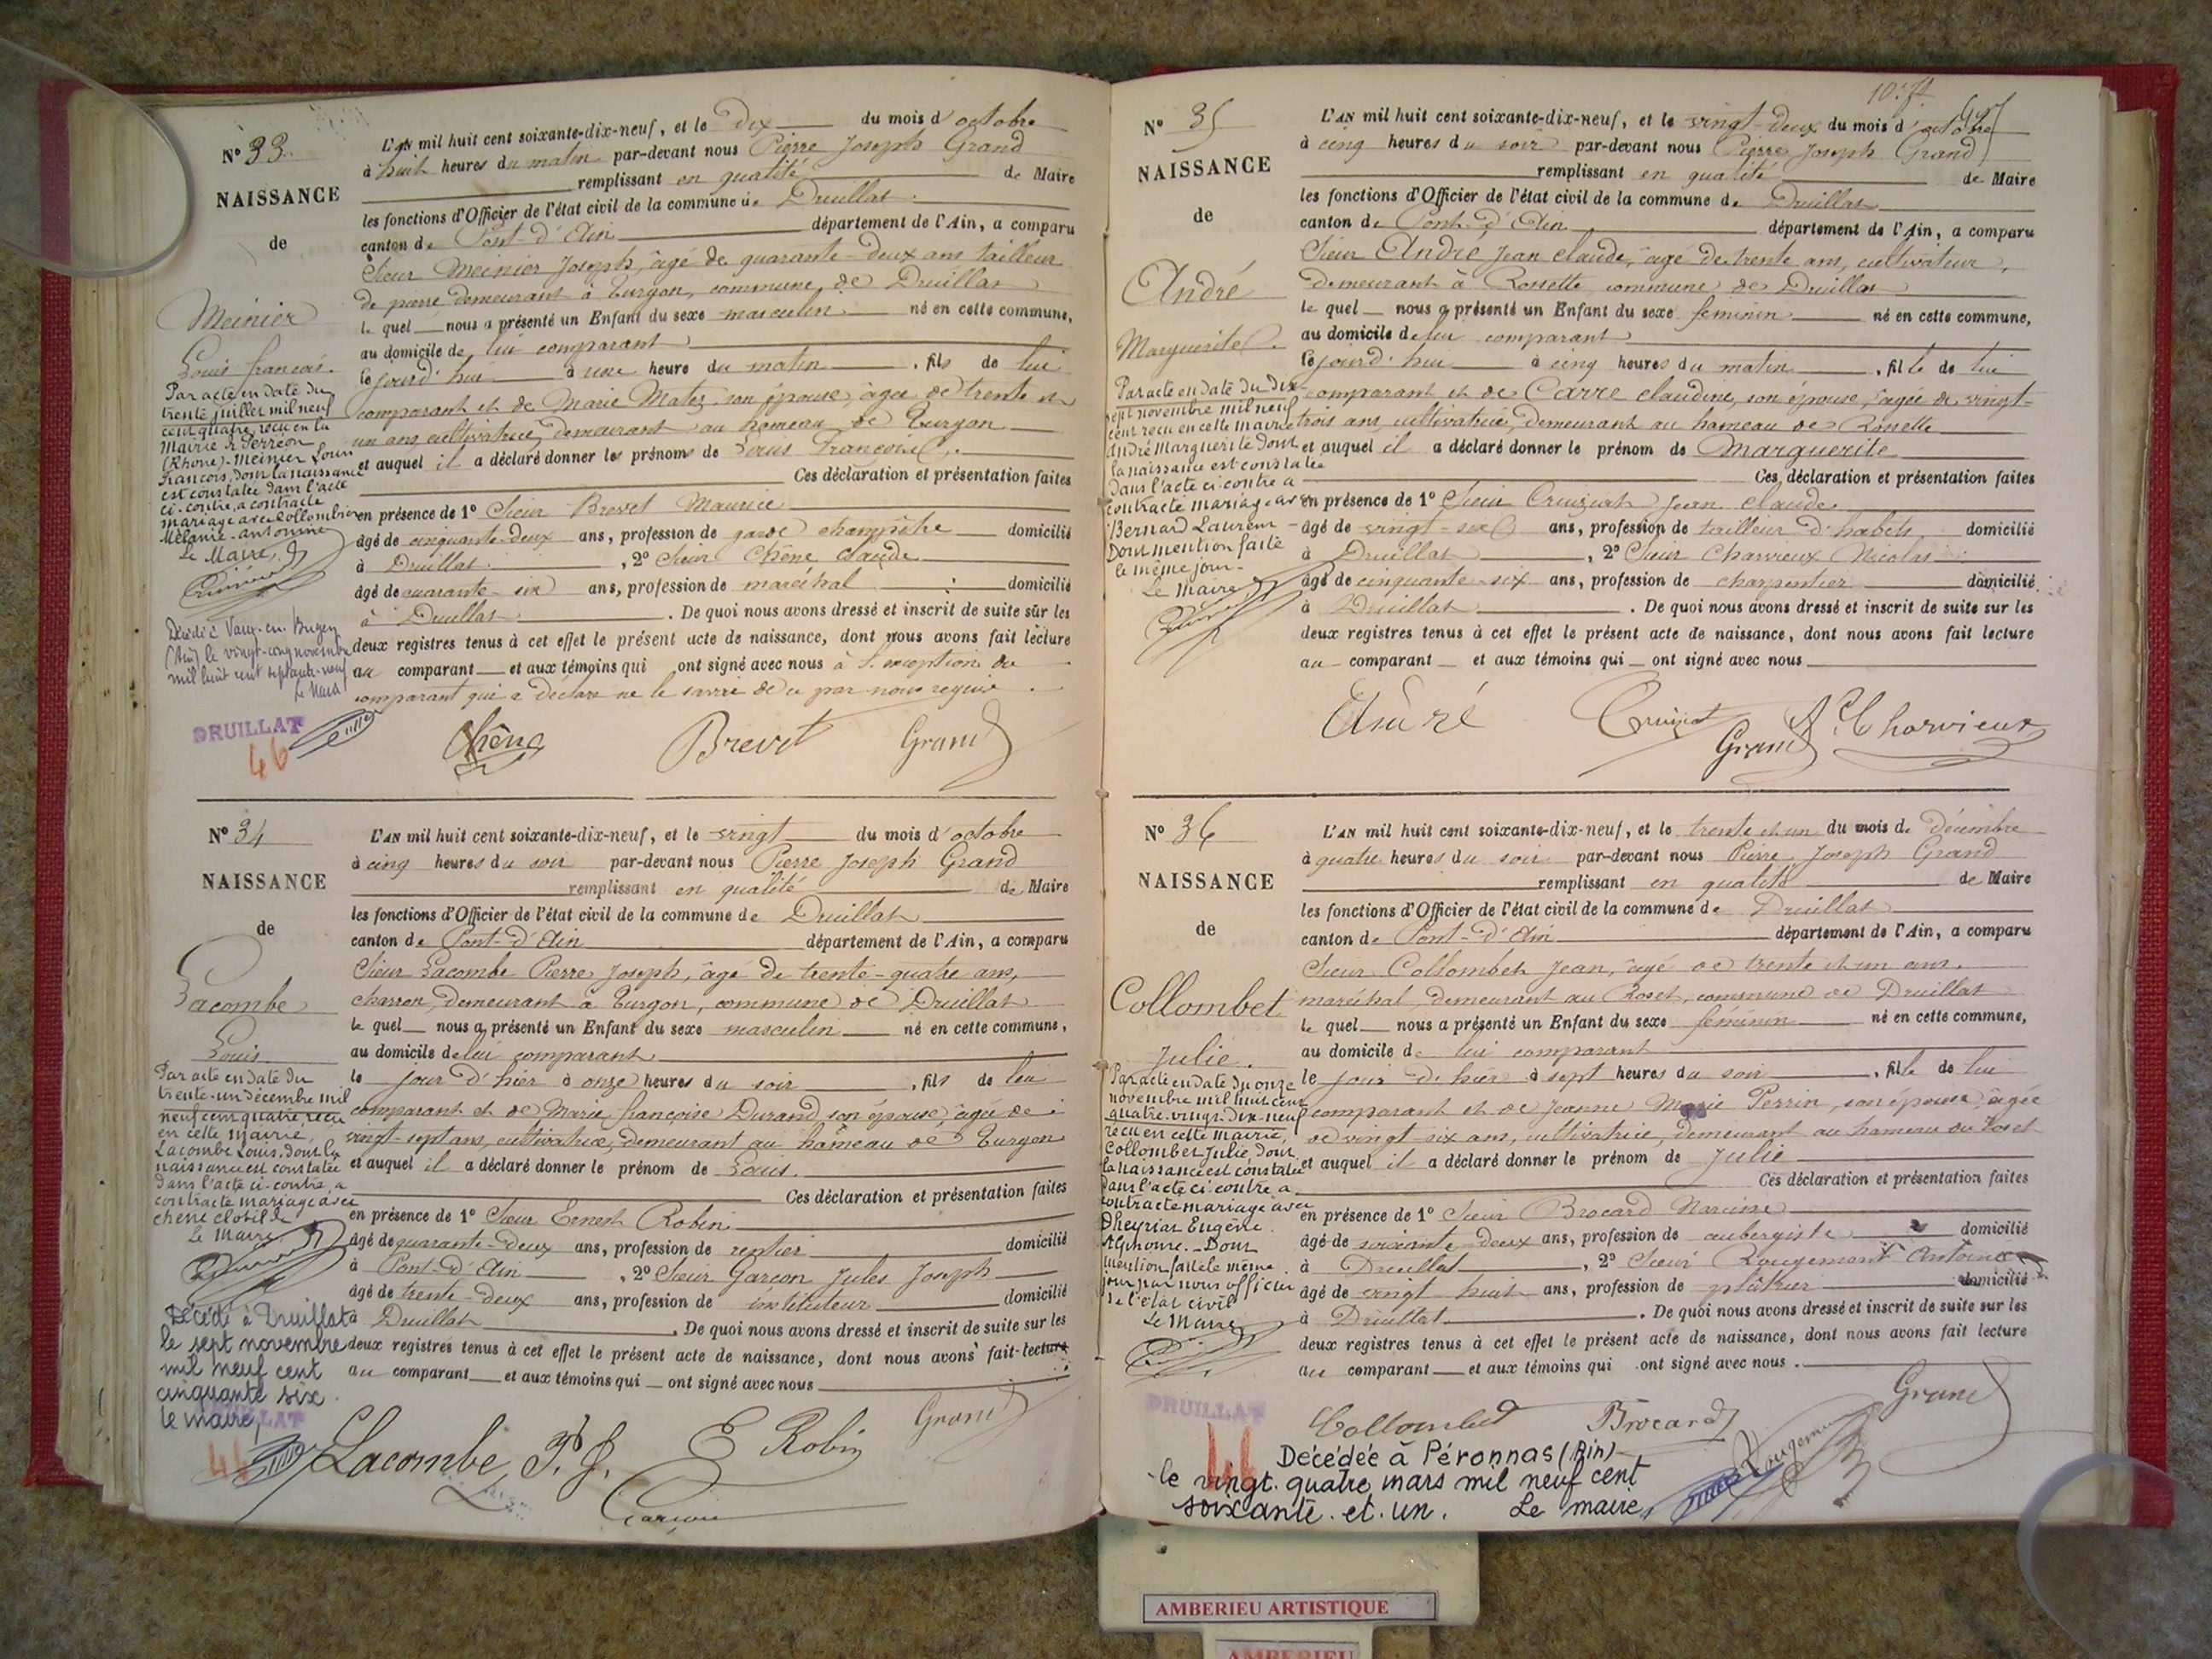 N° 33
NAISSANCE
de
Meinier
Louis françois.
Par acte en date du
trente juillet mil neuf
cent quatre, recu en la
Mairie de Perréon
(Rhone) - Meinier Louis
François, dont la naissance
est constatée dans l'acte
ci-contre, a contracté
mariage avec Collombier
Mélanie-Antonine
Le Maire,
Décédé à Vaux-en-Bugey
(Ain) le vingt-cinq novembre
mil huit cent septante-neuf
Le Maire
DRUILLAT
46
L'AN mil huit cent soixante-dix-neuf, et le dix du mois d'octobre
à huit heures du matin par-devant nous Pierre Joseph Grand
remplissant en qualité de Maire
les fonctions d'Officier de l'état civil de la commune de Druillat
canton de Pont-d'Ain département de l'Ain, a comparu
Sieur Meinier Joseph, âgé de quarante-deux ans tailleur
de pierre demeurant à Turgon, commune de Druillat
le quel nous a présenté un Enfant du sexe masculin né en cette commune,
au domicile de lui comparant
le jourd'hui à une heure du matin, fils de lui
comparant et de Marie Matez son épouse, âgée de trente et
un ans, cultivatrice, demeurant au hameau de Turgon
et auquel il a déclaré donner les prénoms de Louis François.
Ces déclaration et présentation faites
en présence de 1° Sieur Brevet Maurice
âgé de cinquante-deux ans, profession de garde champêtre domicilié
à Druillat, 2° Sieur Chêne Claude
âgé de quarante-six ans, profession de maréchal domicilié
à Druillat. De quoi nous avons dressé et inscrit de suite sur les
deux registres tenus à cet effet le présent acte de naissance, dont nous avons fait lecture
au comparant et aux témoins qui ont signé avec nous à l'exception du
comparant qui a déclaré ne le savoir de ce par nous requis.
Chêne Brevet Grand
N° 34
NAISSANCE
de
Lacombe
Louis
Par acte en date du
trente-un décembre mil
neuf cent quatre, recu
en cette mairie,
Lacombe Louis, dont la
naissance est constatée
dans l'acte ci-contre, a
contracté mariage avec
chêne clotilde
Le Maire
Décédé à Druillat
le sept novembre
mil neuf cent
cinquante six.
le maire,
DRUILLAT
46
L'AN mil huit cent soixante-dix-neuf, et le vingt du mois d'octobre
à cinq heures du soir par-devant nous Pierre Joseph Grand
remplissant en qualité de Maire
les fonctions d'Officier de l'état civil de la commune de Druillat
canton de Pont-d'Ain département de l'Ain, a comparu
Sieur Lacombe Pierre Joseph, âgé de trente-quatre ans,
charron, demeurant à Turgon, commune de Druillat
le quel nous a présenté un Enfant du sexe masculin né en cette commune,
au domicile de lui comparant
le jour d'hier à onze heures du soir, fils de lui
comparant et de Marie françoise Durand son épouse, âgée de
vingt-sept ans, cultivatrice, demeurant au hameau de Turgon
et auquel il a déclaré donner le prénom de Louis.
Ces déclaration et présentation faites
en présence de 1° Sieur Ernest Robin
âgé de quarante-deux ans, profession de rentier domicilié
à Pont-d'Ain, 2° Sieur Garçon Jules Joseph
âgé de trente-deux ans, profession de instituteur domicilié
à Druillat. De quoi nous avons dressé et inscrit de suite sur les
deux registres tenus à cet effet le présent acte de naissance, dont nous avons fait lecture
au comparant et aux témoins qui ont signé avec nous
Lacombe P. J. E Robin Grand
Garçon
N° 35
NAISSANCE
de
André
Marguerite.
Par acte en date du dix-
sept novembre mil neuf
cent recu en cette mairie
André Marguerite dont
la naissance est constatée
dans l'acte ci-contre a
contracté mariage avec
Bernard Laurent -
Dont mention faite
le même jour -
Le Maire
L'AN mil huit cent soixante-dix-neuf, et le vingt-deux du mois d'octobre
à cinq heures du soir par-devant nous Pierre Joseph Grand
remplissant en qualité de Maire
les fonctions d'Officier de l'état civil de la commune de Druillat
canton de Pont-d'Ain département de l'Ain, a comparu
Sieur André Jean Claude, âgé de trente ans, cultivateur,
demeurant à Rossette commune de Druillat
le quel nous a présenté un Enfant du sexe féminin né en cette commune,
au domicile de lui comparant
le jourd'hui à cinq heures du matin, fille de lui
comparant et de Carre claudine, son épouse, âgée de vingt-
trois ans, cultivatrice, demeurant au hameau de Rossette
et auquel il a déclaré donner le prénom de Marguerite
Ces déclaration et présentation faites
en présence de 1° Sieur Cruiziat Jean Claude
âgé de vingt-six ans, profession de tailleur d'habits domicilié
à Druillat, 2° Sieur Charvieux Nicolas
âgé de cinquante-six ans, profession de charpentier domicilié
à Druillat. De quoi nous avons dressé et inscrit de suite sur les
deux registres tenus à cet effet le présent acte de naissance, dont nous avons fait lecture
au comparant et aux témoins qui ont signé avec nous
André Cruiziat Grand Charvieux
N° 36
NAISSANCE
de
Collombet
Julie.
Par acte en date du onze
novembre mil huit cent
quatre-vingt-dix-neuf
recu en cette mairie,
Collombet Julie, dont
la naissance est constatée
dans l'acte ci-contre a
contracté mariage avec
Dheyriat Eugène
Alphonse. - Dont
mention faite le même
jour par nous officier
de l'état civil
Le Maire
DRUILLAT
L'AN mil huit cent soixante-dix-neuf, et le trente et un du mois de décembre
à quatre heures du soir par-devant nous Pierre Joseph Grand
remplissant en qualité de Maire
les fonctions d'Officier de l'état civil de la commune de Druillat
canton de Pont-d'Ain département de l'Ain, a comparu
Sieur Collombet Jean, âgé de trente et un ans.
maréchal, demeurant au Roset, commune de Druillat
le quel nous a présenté un Enfant du sexe féminin né en cette commune,
au domicile de lui comparant
le jour d'hier à sept heures du soir, fille de lui
comparant et de Jeanne Marie Perrin, son épouse, âgée
de vingt-six ans, cultivatrice, demeurant au hameau du Roset
et auquel il a déclaré donner le prénom de Julie
Ces déclaration et présentation faites
en présence de 1° Sieur Brocard Narcisse
âgé de soixante-deux ans, profession de aubergiste domicilié
à Druillat, 2° Sieur Rougemont Antoine
âgé de vingt huit ans, profession de plâtrier domicilié
à Druillat. De quoi nous avons dressé et inscrit de suite sur les
deux registres tenus à cet effet le présent acte de naissance, dont nous avons fait lecture
au comparant et aux témoins qui ont signé avec nous.
Collombet Brocard Rougemont Grand
Décédée à Péronnas (Ain)
le vingt.quatre mars mil neuf cent
soixante.et.un. Le maire,
AMBERIEU ARTISTIQUE
AMBERIEU